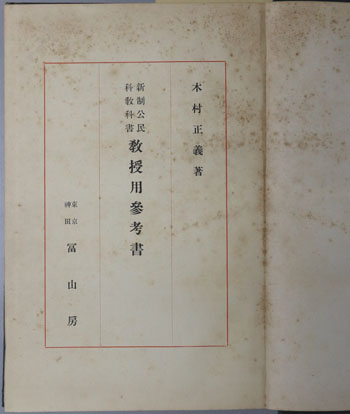 木村正義著
新制公民
科敎科書
敎授用參考書
東京
神田
冨山房